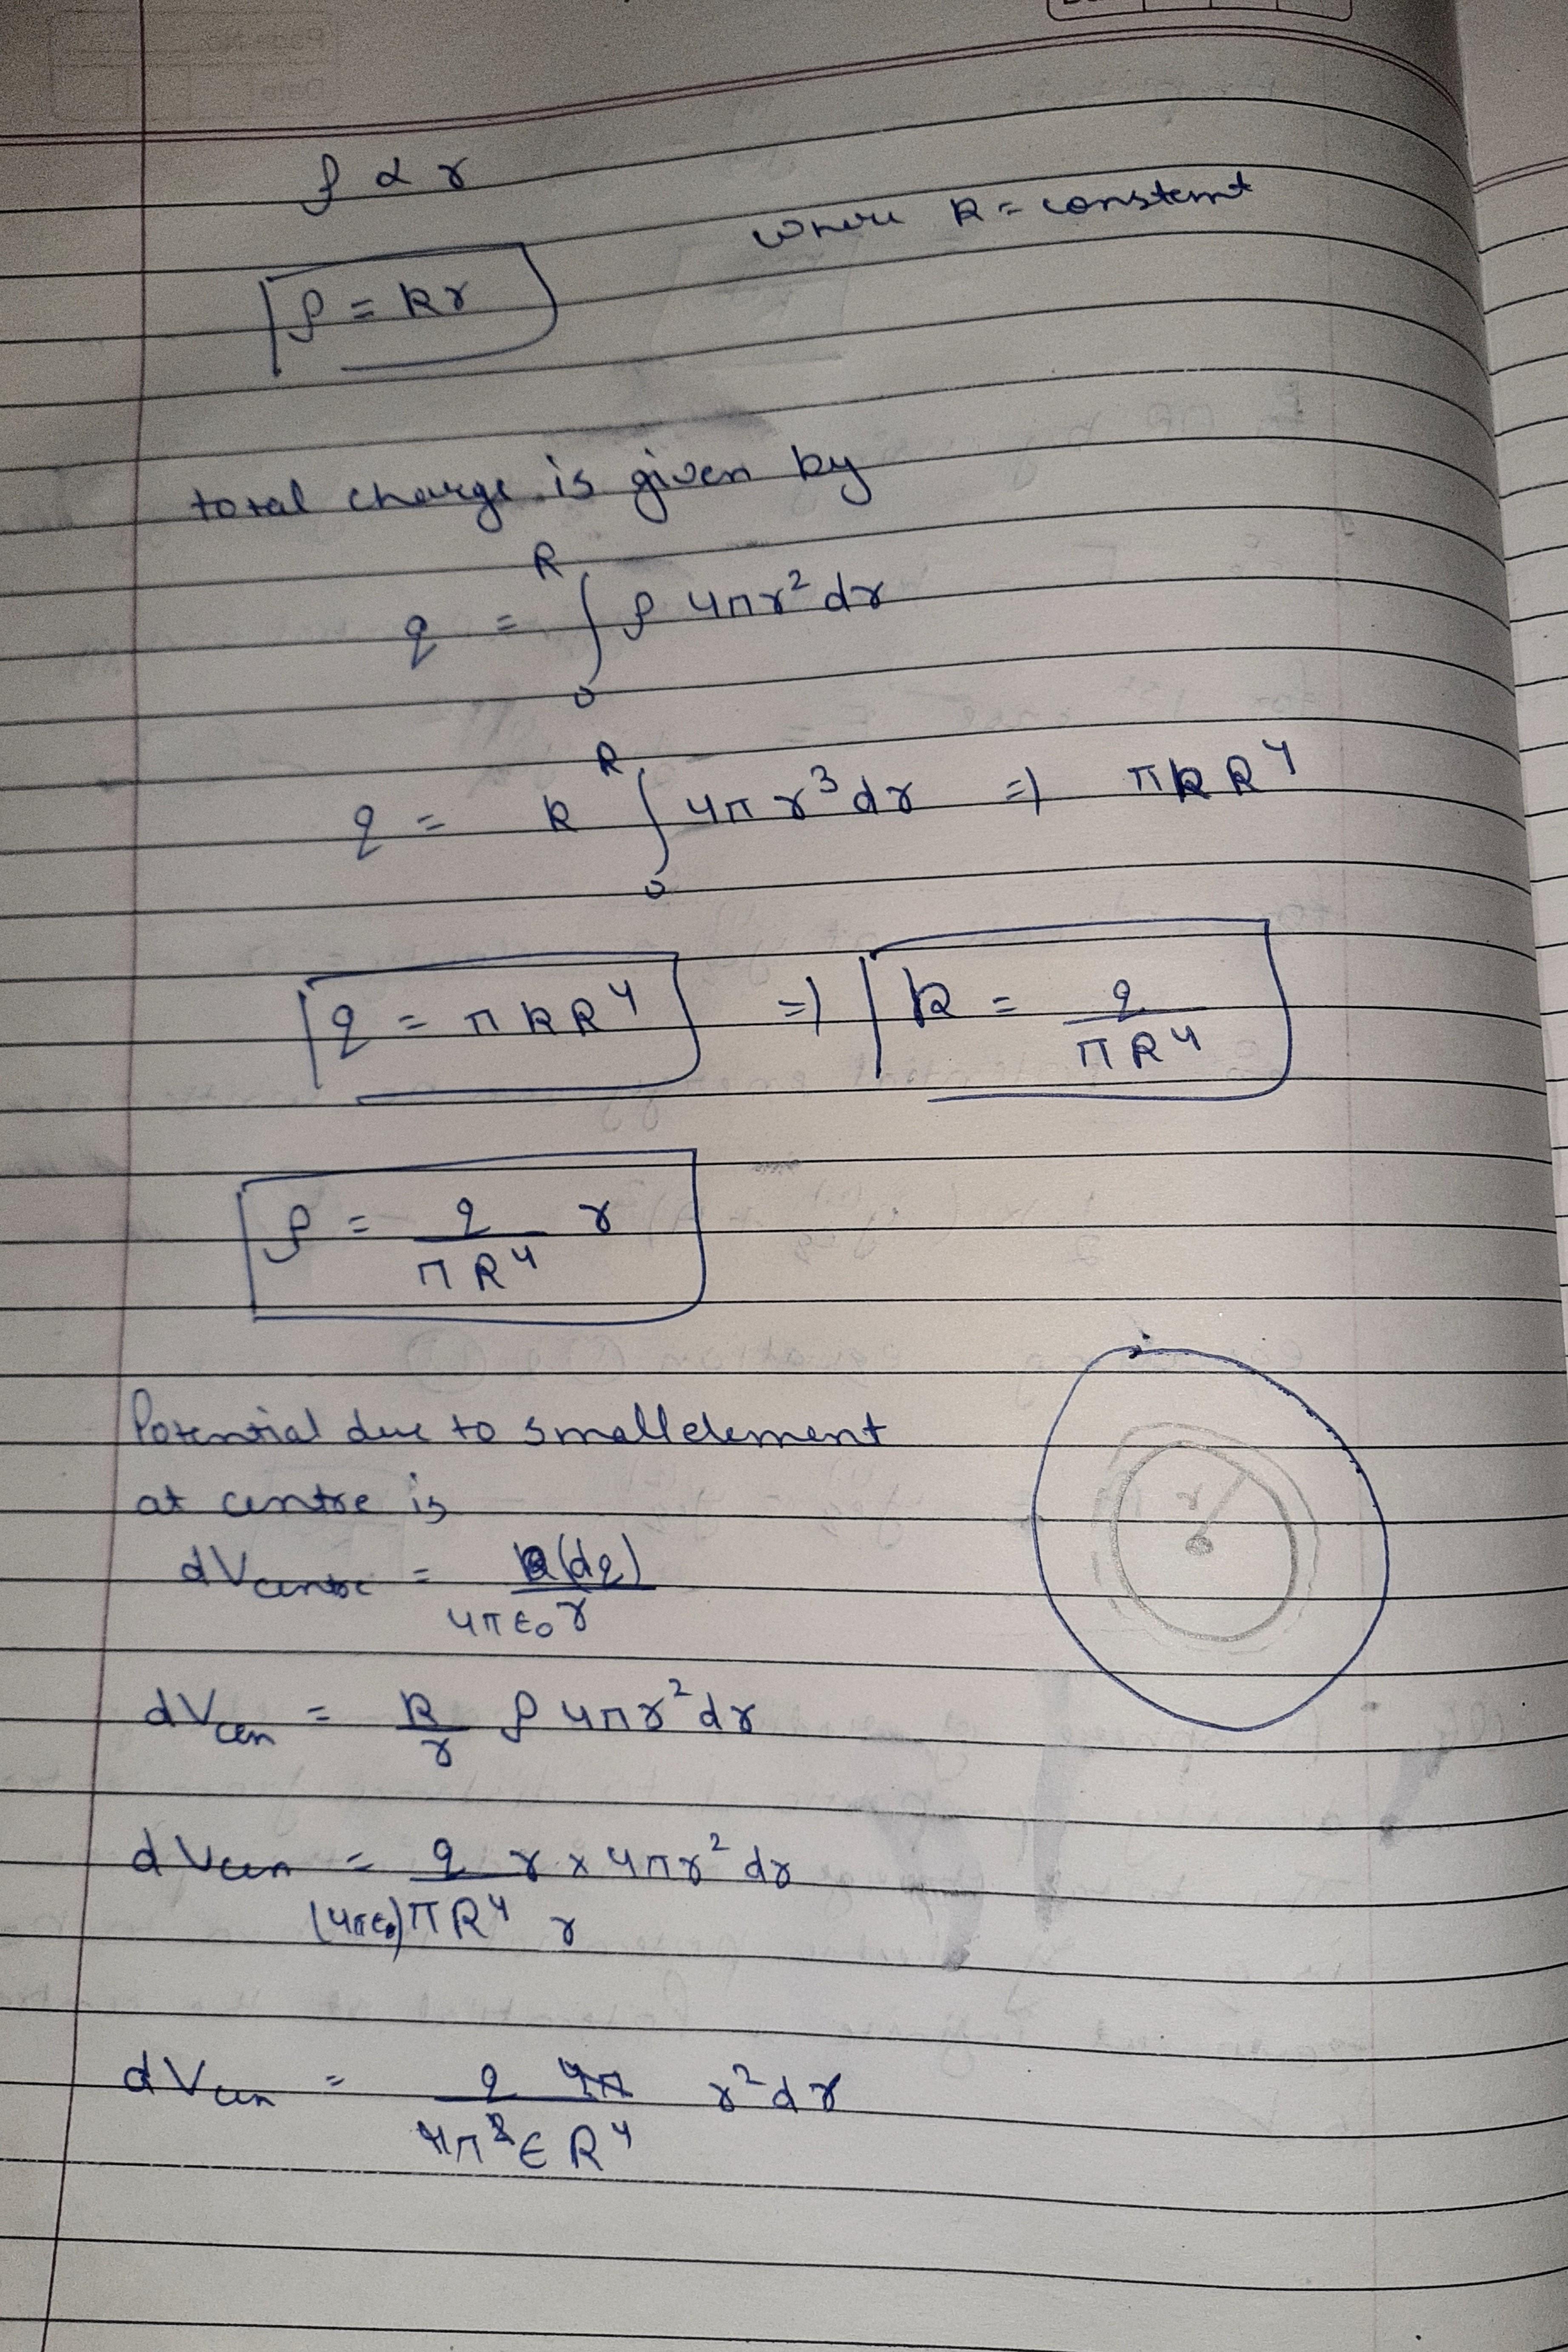 ρ α r
ρ = kr where k = constant
total charge is given by
q = ∫₀ᴿ ρ 4πr² dr
q = k ∫₀ᴿ 4π r³ dr ⇒ πkR⁴
q = πkR⁴ ⇒ k = q / πR⁴
ρ = q / πR⁴ r
Potential due to small element
at centre is
dVcentre = k(dq) / 4πε₀r
r
dVcen = k/r ρ 4πr² dr
dVcen = q r × 4πr² dr / (4πε₀)πR⁴ r
dVcen = q 4π / 4π²ε R⁴ r² dr